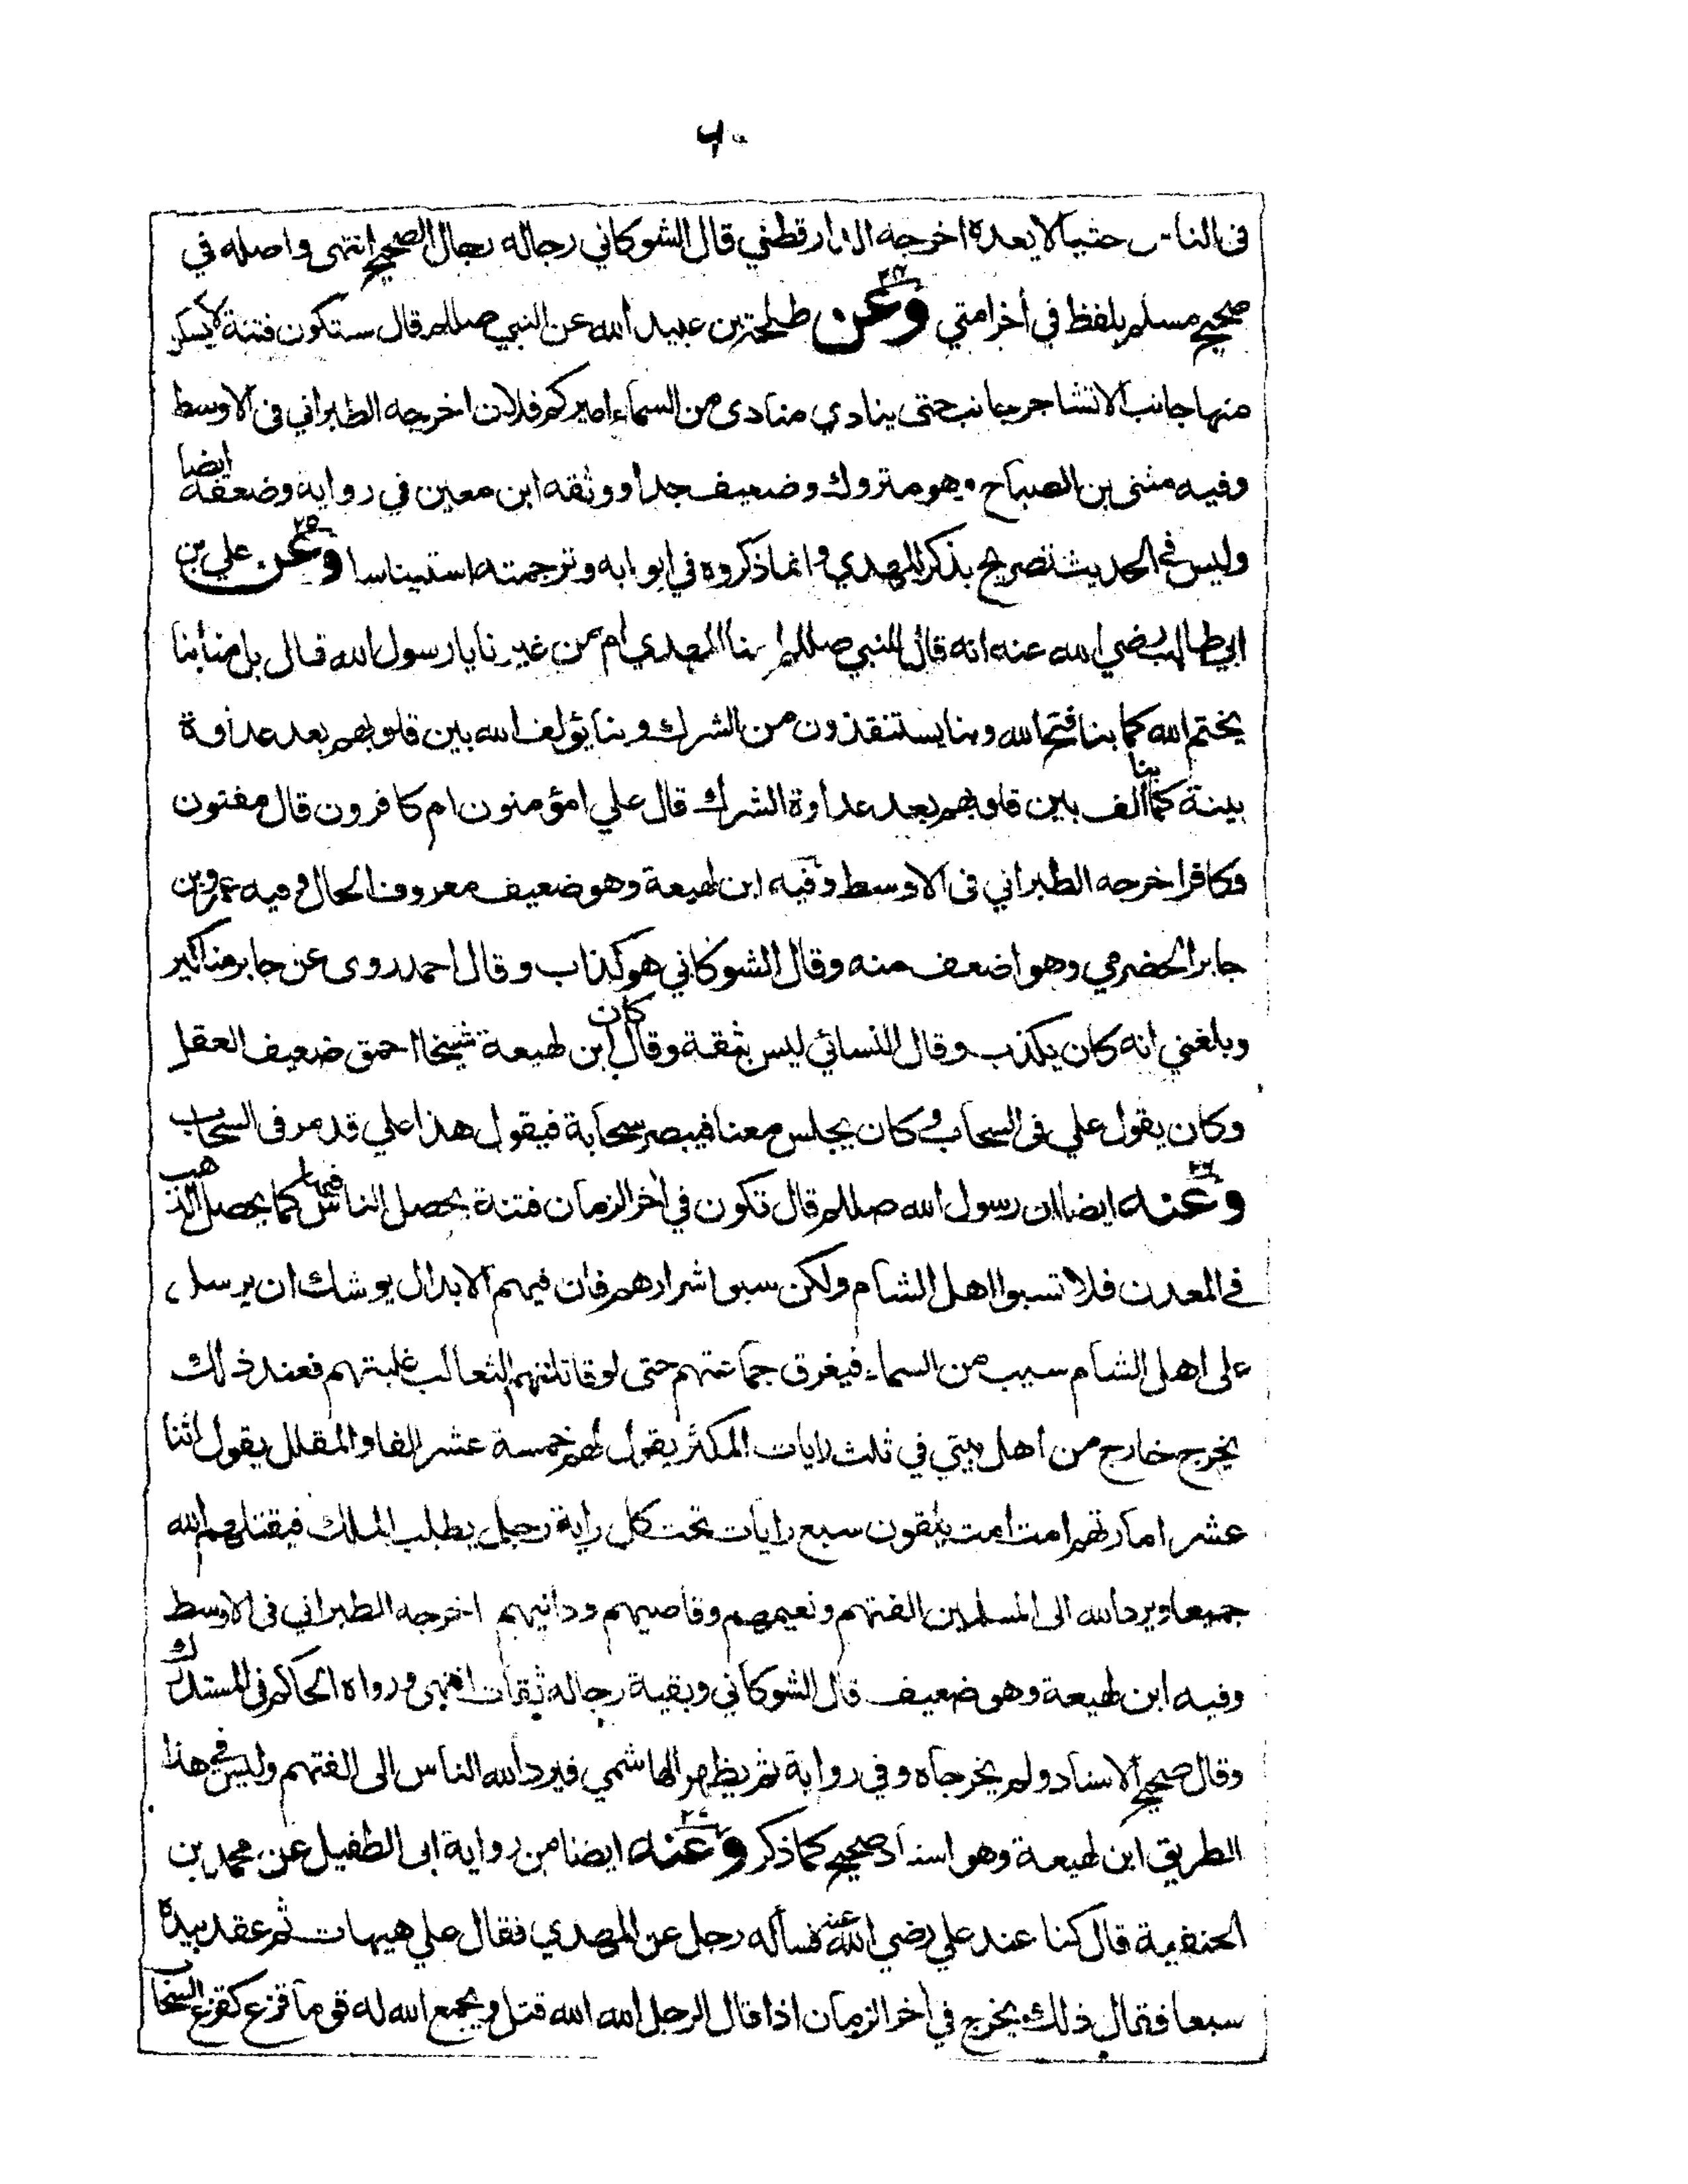 ٦٠
فى الناس حثيا لا يعده اخرجه الدارقطني قال الشوكاني رجاله رجال الصحيح انتهى واصله في
صحيح مسلم بلفظ في أخر امتي وعن ٢٤ طلحة بن عبيد الله عن النبي صللم قال ستكون فتنة لا يسكن
منها جانب الا تشاجر جانب حتى ينادي منادى من السماء اميركم فلان اخرجه الطبراني فى الاوسط
وفيه مثنى بن الصباح وهو متروك وضعيف جدا ووثقه ابن معين في رواية وضعفه ايضا
وليس في الحديث تصريح بذكر المهدي وانما ذكروه في ابوابه وترجمته استيناسا وعن ٢٥ علي بن
ابي طالب رضي الله عنه انه قال للنبي صللم امنا المهدي ام من غيرنا يا رسول الله قال بل منا بنا
يختم الله كما بنا فتح الله وبنا يستنقذون من الشرك وبنا يؤلف الله بين قلوبهم بعد عداوة
بينة كما بنا الف بين قلوبهم بعد عداوة الشرك قال علي امؤمنون ام كافرون قال مفتون
وكافر اخرجه الطبراني فى الاوسط وفيه ابن لهيعة وهو ضعيف معروف الحال وفيه عمرو بن
جابر الحضرمي وهو اضعف منه وقال الشوكاني هو كذاب وقال احمد روى عن جابر مناكير
وبلغني انه كان يكذب وقال النسائي ليس بثقة وقال كان ابن لهيعة شيخا احمق ضعيف العقل
وكان يقول علي فى السحاب وكان يجلس معنا فيبصر سحابة فيقول هذا علي قد مر فى السحاب
وعنه ٢٦ ايضا ان رسول الله صللم قال تكون في أخر الزمان فتنة يحصل الناس فيها كما يحصل الذهب
في المعدن فلا تسبوا اهل الشام ولكن سبوا شرارهم فان فيهم الابدال يوشك ان يرسل
على اهل الشام سيب من السماء فيغرق جماعتهم حتى لو قاتلتهم الثعالب غلبتهم فعند ذلك
يخرج خارج من اهل بيتي في ثلث رايات المكثر يقول لهم خمسة عشر الفا والمقلل يقول اثنا
عشر امارتهم امت امت يلقون سبع رايات تحت كل راية رجل يطلب الملك فيقتلهم الله
جميعا ويرد الله الى المسلمين الفتهم ونعيمهم وقاصيهم ودانيهم اخرجه الطبراني فى الاوسط
وفيه ابن لهيعة وهو ضعيف قال الشوكاني وبقية رجاله ثقات انتهى ورواه الحاكم فى المستدرك
وقال صحيح الاسناد ولم يخرجاه وفي رواية ثم يظهر الهاشمي فيرد الله الناس الى الفتهم وليس في هذا
الطريق ابن لهيعة وهو اسناد صحيح كما ذكر وعنه ايضا من رواية ابى الطفيل عن محمد بن
الحنفية قال كنا عند علي رضي الله عنه فسأله رجل عن المهدي فقال علي هيهات ثم عقد بيده
سبعا فقال ذلك يخرج في أخر الزمان اذا قال الرجل الله الله قتل ويجمع الله له قوما قزع كقزع السحاب